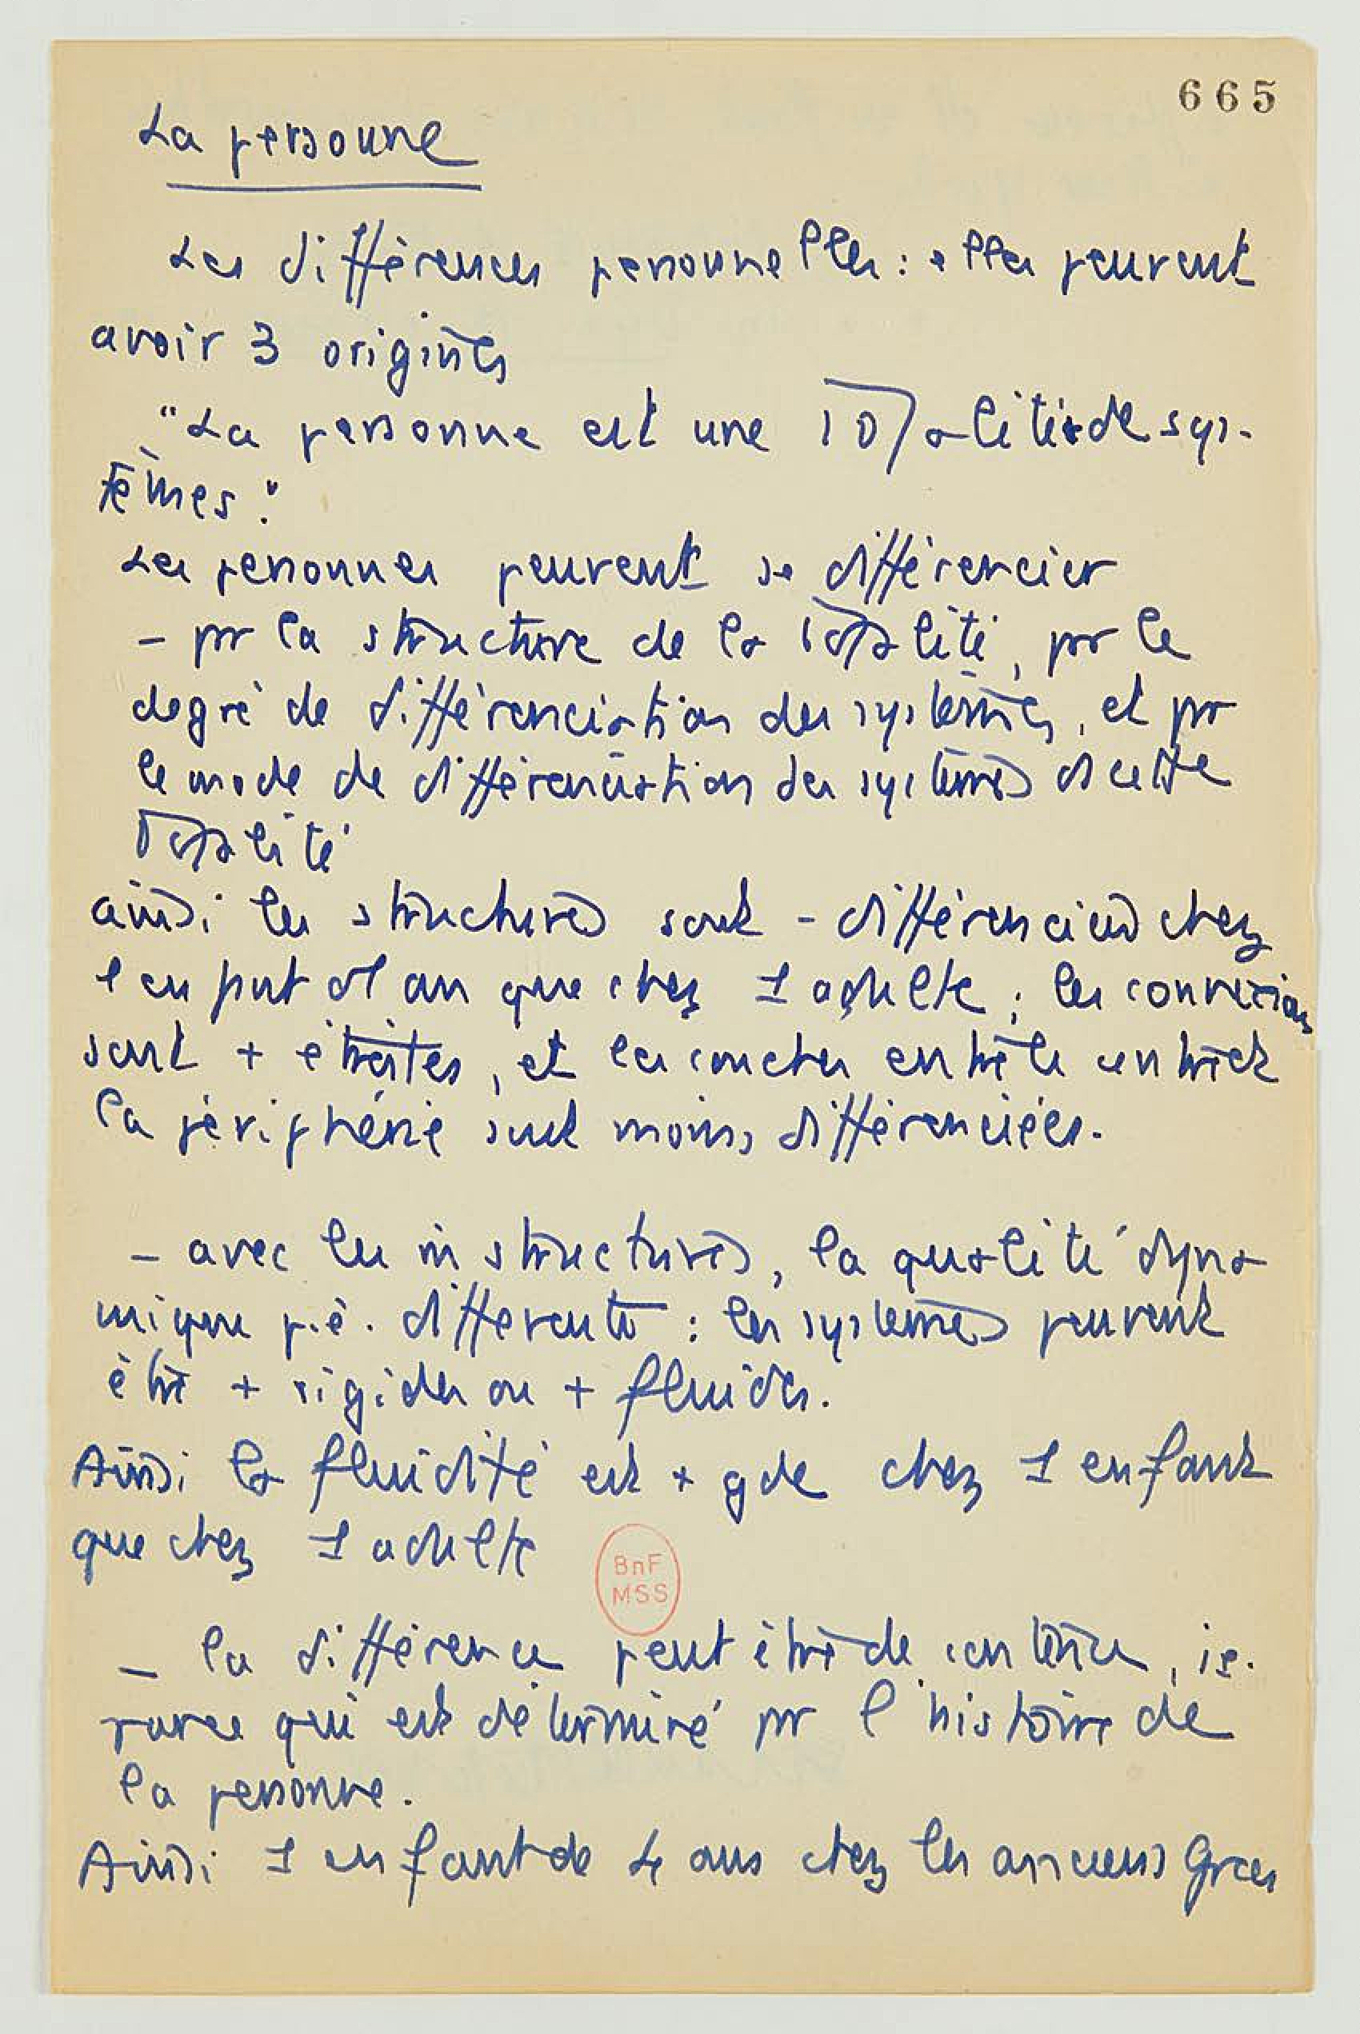 665
La personne
Les différences personnelles : elles peuvent
avoir 3 origines
"La personne est une totalité de sys-
tèmes."
Les personnes peuvent se différencier
- pr la structure de la totalité, pr le
degré de différenciation des systèmes, et pr
le mode de différenciation des systèmes ds cette
totalité
ainsi les structures sont - différenciées chez
1 enfant d'1 an que chez 1 adulte ; les connexions
sont + étroites, et les couches entre le centre et
la périphérie sont moins différenciées.
- avec les m structures, la qualité dyna
mique p. ê. différente : les systèmes peuvent
être + rigides ou + fluides.
Ainsi la fluidité est + gde chez 1 enfant
que chez 1 adulte
BnF
MSS
- la différence peut être de contenu, ie.
parce qui est déterminé pr l'histoire de
la personne.
Ainsi 1 enfant de 4 ans chez les anciens Grecs